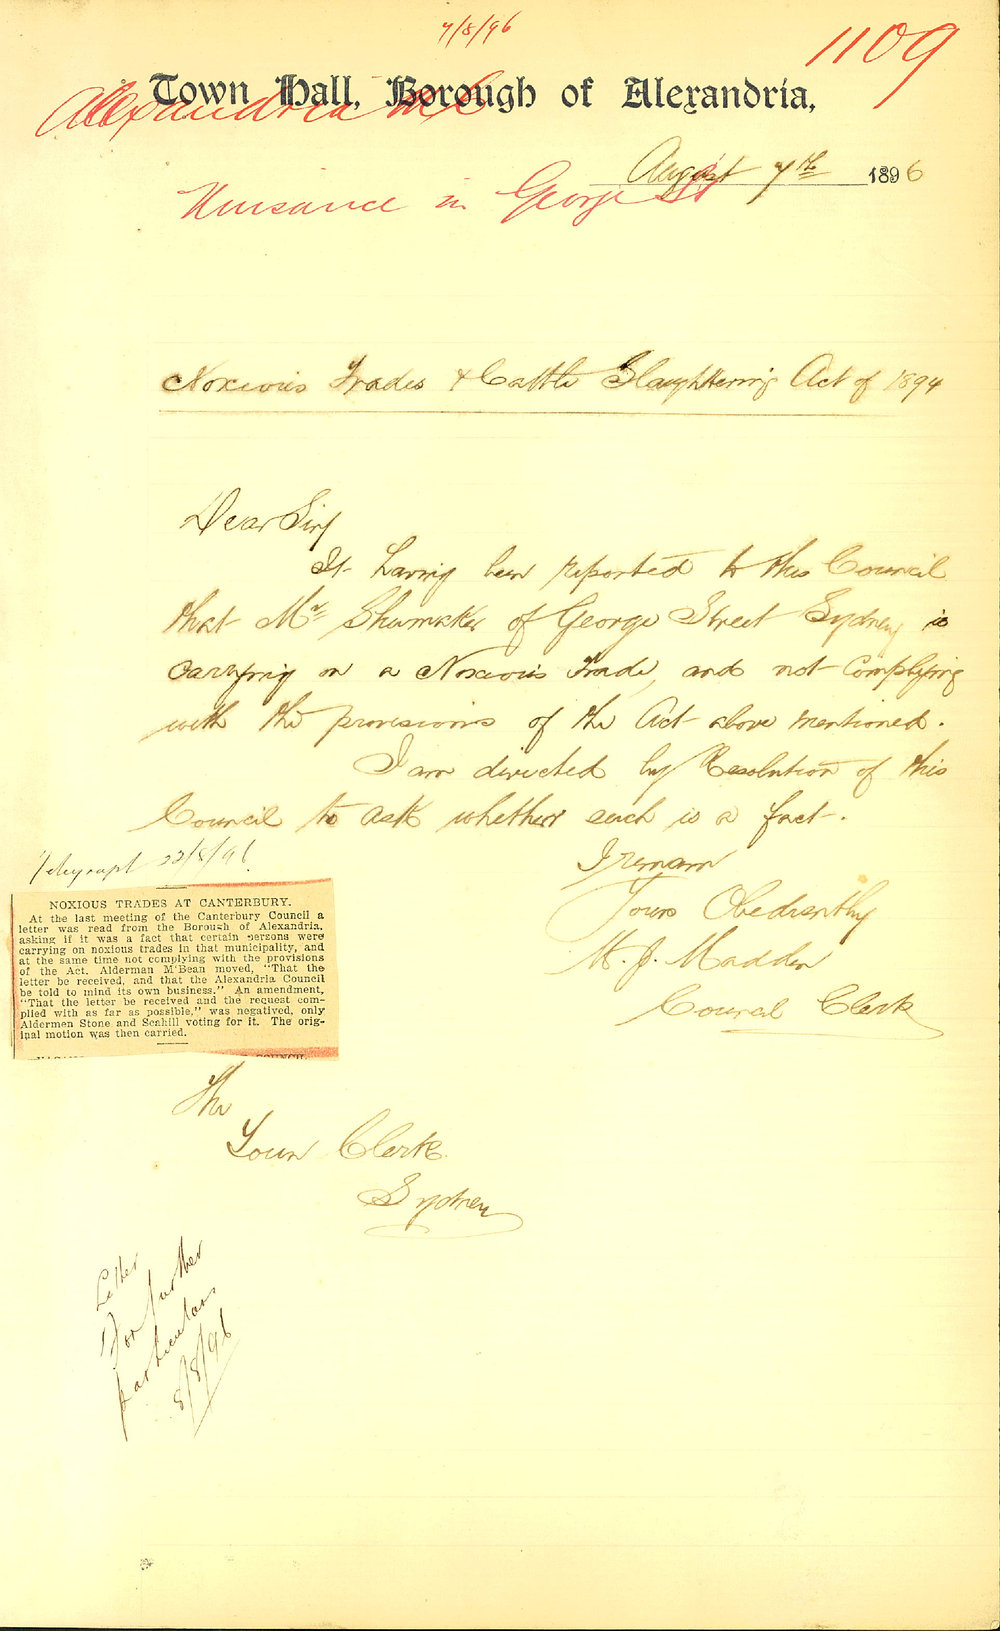 7/8/96
1109
Town Hall, Borough of Alexandria,
Alexandria M.C.
August 7th 1896
Nuisance in George St
Noxious Trades & Cattle Slaughtering Act of 1894
Dear Sir/
It having been reported to this Council
that Mr Shumaker of George Street Sydney is
carrying on a Noxious Trade, and not complying
with the provisions of the Act above mentioned.
I am directed by Resolution of this
Council to ask whether such is a fact.
I remain
Yours Obediently
M. J. Madden
Council Clerk
Telegraph 22/8/96
NOXIOUS TRADES AT CANTERBURY.
At the last meeting of the Canterbury Council a
letter was read from the Borough of Alexandria,
asking if it was a fact that certain persons were
carrying on noxious trades in that municipality, and
at the same time not complying with the provisions
of the Act. Alderman M'Bean moved, "That the
letter be received, and that the Alexandria Council
be told to mind its own business." An amendment,
"That the letter be received and the request com-
plied with as far as possible," was negatived, only
Aldermen Stone and Scahill voting for it. The orig-
inal motion was then carried.
COUNCIL
The
Town Clerk
Sydney
Letter
for further
particulars
8/8/96